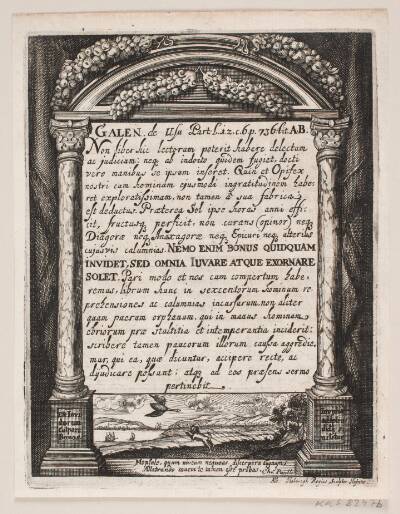 GALEN. de Usu Part. L.12. c.6. p. 736. lit. AB.
Non liber hic lectorem poterit habere delectum
ac judicium: neq. ab indocto quidem fugiet, docti
vero manibus se ipsum inseret. Quin et Opifex
nostri cum hominum ejusmodi ingratitudinem habe:
ret exploratissimam, non tamen à sua fabrica
est deductus. Præterea Sol ipse horas anni effi:
cit, fructusq. perficit; non curans (opinor) neq.
Diagoræ neq. Anaxagoræ neq. Epicuri neq. alterius
cujusvis calumnias. NEMO ENIM BONUS QUIDQUAM
INVIDET, SED OMNIA IUVARE ATQUE EXORNARE
SOLET. Pari modo et nos cum compertum habe:
remus, librum hunc in sexcentorum hominum re
prehensiones ac calumnias incursurum, non aliter
quam puerum orphanum, qui in manus hominum
ebriorum præ stultitia et intemperantia inciderit:
scribere tamen paucorum illorum caussa aggredie,
mur, qui ea, quæ dicuntur, accipere recte, ac
dijudicare possunt: atq. ad eos præsens sermo
pertinebit.
quam nunquam nequeas discerpere
tamen
Sculptor Hafniæ